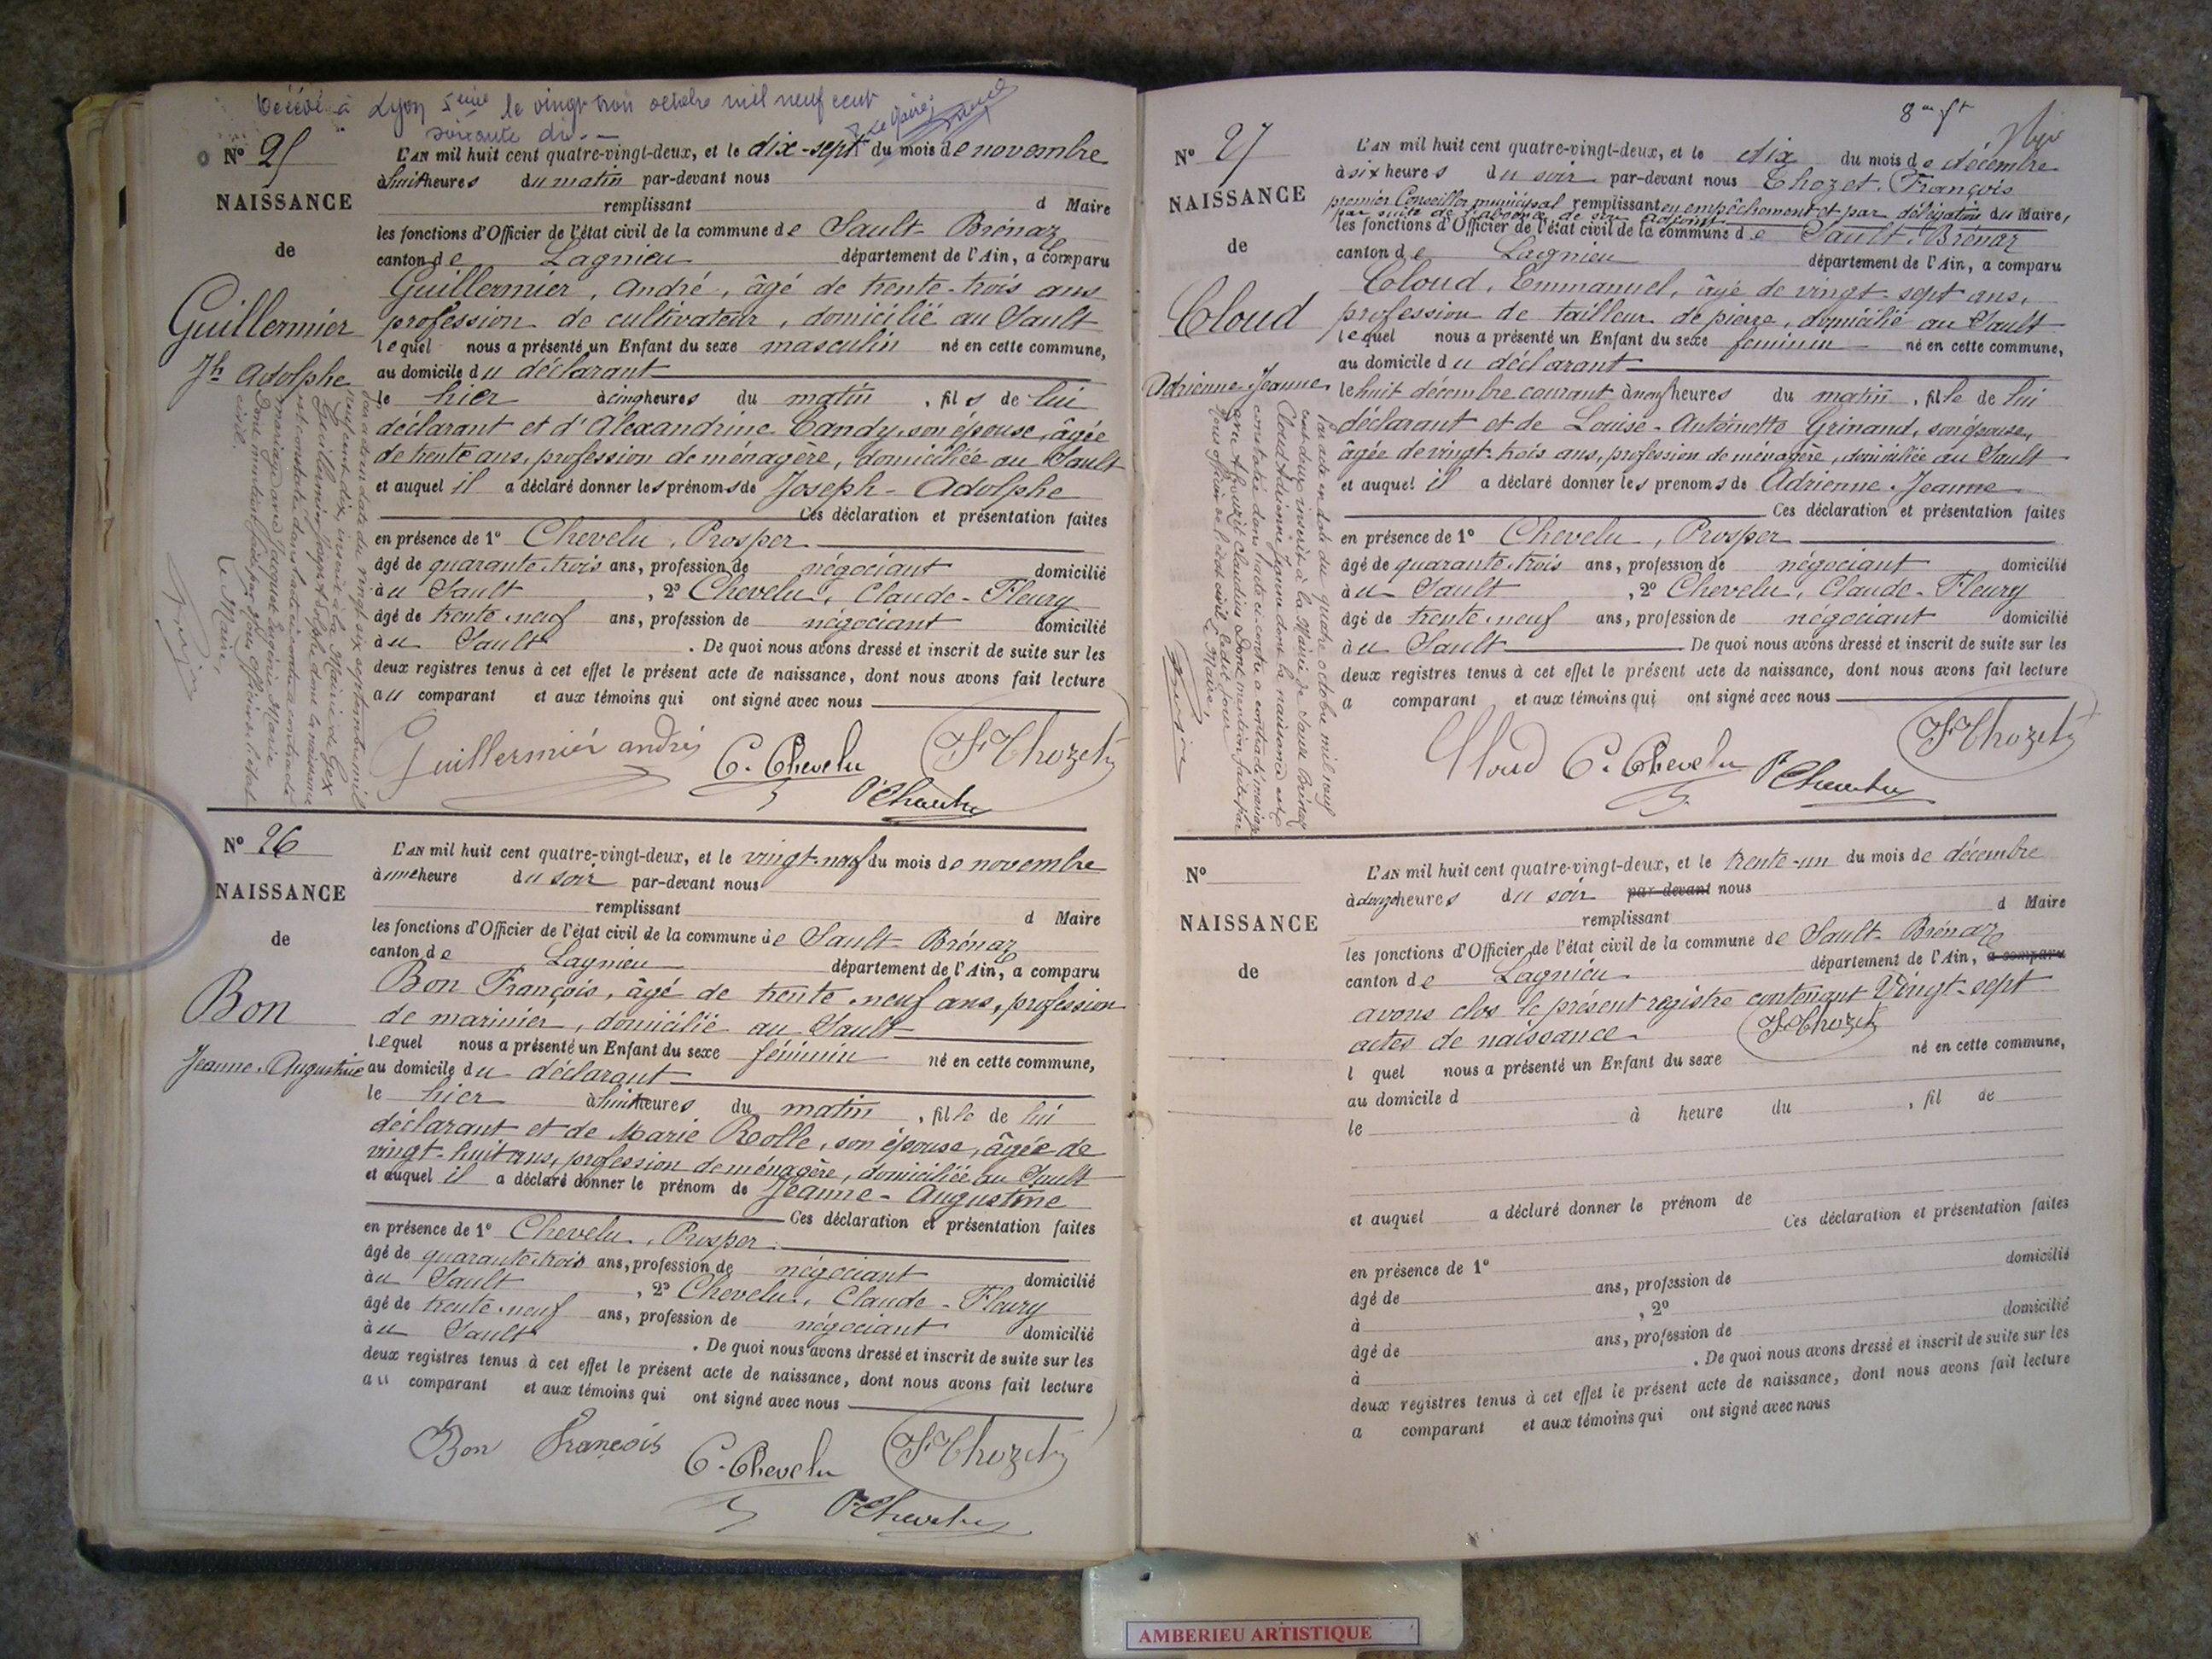 Décédé à Lyon 5ème le vingt trois octobre mil neuf cent
soixante dix. Le Maire,
N° 25
NAISSANCE
de
Guillermier
Jh Adolphe
L'AN mil huit cent quatre-vingt-deux, et le dix-sept du mois de novembre
à huit heures du matin par-devant nous
remplissant d Maire
les fonctions d'Officier de l'état civil de la commune de Sault-Brénaz
canton de Lagnieu département de l'Ain, a comparu
Guillermier, André, âgé de trente-trois ans
profession de cultivateur, domicilié au Sault
lequel nous a présenté un Enfant du sexe masculin né en cette commune,
au domicile du déclarant
le hier à cinq heures du matin, fils de lui
déclarant et d'Alexandrine Candy, son épouse, âgée
de trente ans, profession de ménagère, domiciliée au Sault
et auquel il a déclaré donner les prénoms de Joseph-Adolphe
Ces déclaration et présentation faites
en présence de 1° Chevelu, Prosper
âgé de quarante-trois ans, profession de négociant domicilié
à au Sault, 2° Chevelu, Claude-Fleury
âgé de trente-neuf ans, profession de négociant domicilié
à au Sault. De quoi nous avons dressé et inscrit de suite sur les
deux registres tenus à cet effet le présent acte de naissance, dont nous avons fait lecture
au comparant et aux témoins qui ont signé avec nous
Guillermier andré C. Chevelu F. Thozet
P. Chevelu
en date du vingt six septembre mil
neuf cent dix, inscrit à la Mairie de Gex
Guillermier Joseph Adolphe dont la naissance
est constatée dans l'acte ci-contre a contracté
mariage avec Jacquet Eugénie Marie
Dont mention faite par Nous officier de l'état
civil.
Le Maire,
N° 26
NAISSANCE
de
Bon
Jeanne-Augustine
L'AN mil huit cent quatre-vingt-deux, et le vingt-neuf du mois de novembre
à une heure du soir par-devant nous
remplissant d Maire
les fonctions d'Officier de l'état civil de la commune de Sault-Brénaz
canton de Lagnieu département de l'Ain, a comparu
Bon François, âgé de trente-neuf ans, profession
de marinier, domicilié au Sault
lequel nous a présenté un Enfant du sexe féminin né en cette commune,
au domicile du déclarant
le hier à huit heures du matin, fille de lui
déclarant et de Marie Rolle, son épouse, âgée de
vingt-huit ans, profession de ménagère, domiciliée au Sault
et auquel il a déclaré donner le prénom de Jeanne-Augustine
Ces déclaration et présentation faites
en présence de 1° Chevelu, Prosper
âgé de quarante-trois ans, profession de négociant domicilié
à au Sault, 2° Chevelu, Claude-Fleury
âgé de trente-neuf ans, profession de négociant domicilié
à au Sault. De quoi nous avons dressé et inscrit de suite sur les
deux registres tenus à cet effet le présent acte de naissance, dont nous avons fait lecture
au comparant et aux témoins qui ont signé avec nous
Bon François C. Chevelu F. Thozet
P. Chevelu
8me ft
N° 27
NAISSANCE
de
Cloud
Adrienne-Jeanne
L'AN mil huit cent quatre-vingt-deux, et le dix du mois de décembre
à six heures du soir par-devant nous Thozet, François
premier Conseiller municipal remplissant en empêchement et par délégation du Maire,
par suite de l'absence de son adjoint
les fonctions d'Officier de l'état civil de la commune de Sault-Brénaz
canton de Lagnieu département de l'Ain, a comparu
Cloud, Emmanuel, âgé de vingt-sept ans,
profession de tailleur de pierre, domicilié au Sault
lequel nous a présenté un Enfant du sexe féminin né en cette commune,
au domicile du déclarant
le huit décembre courant à neuf heures du matin, fille de lui
déclarant et de Louise-Antoinette Grinand, son épouse,
âgée de vingt-trois ans, profession de ménagère, domiciliée au Sault
et auquel il a déclaré donner les prénoms de Adrienne-Jeanne
Ces déclaration et présentation faites
en présence de 1° Chevelu, Prosper
âgé de quarante-trois ans, profession de négociant domicilié
à au Sault, 2° Chevelu, Claude-Fleury
âgé de trente-neuf ans, profession de négociant domicilié
à au Sault. De quoi nous avons dressé et inscrit de suite sur les
deux registres tenus à cet effet le présent acte de naissance, dont nous avons fait lecture
a comparant et aux témoins qui ont signé avec nous
Cloud C. Chevelu P. Chevelu F. Thozet
Par acte en date du quatre octobre mil neuf
cent deux, inscrit à la Mairie de Sault Brénaz
Cloud Adrienne Jeanne dont la naissance est
constatée dans l'acte ci-contre a contracté mariage
avec Claudius Dont mention faite par
Nous officier de l'état civil ledit jour
Le Maire,
N°
NAISSANCE
de
L'AN mil huit cent quatre-vingt-deux, et le trente-un du mois de décembre
à douze heures du soir par-devant nous
remplissant d Maire
les fonctions d'Officier de l'état civil de la commune de Sault-Brénaz
canton de Lagnieu département de l'Ain, a comparu
avons clos le présent registre contenant Vingt-sept
actes de naissance. F. Thozet
l quel nous a présenté un Enfant du sexe né en cette commune,
au domicile d
le à heure du , fil de
et auquel a déclaré donner le prénom de
Ces déclaration et présentation faites
en présence de 1°
âgé de ans, profession de domicilié
à , 2°
âgé de ans, profession de domicilié
à . De quoi nous avons dressé et inscrit de suite sur les
deux registres tenus à cet effet le présent acte de naissance, dont nous avons fait lecture
a comparant et aux témoins qui ont signé avec nous
AMBERIEU ARTISTIQUE